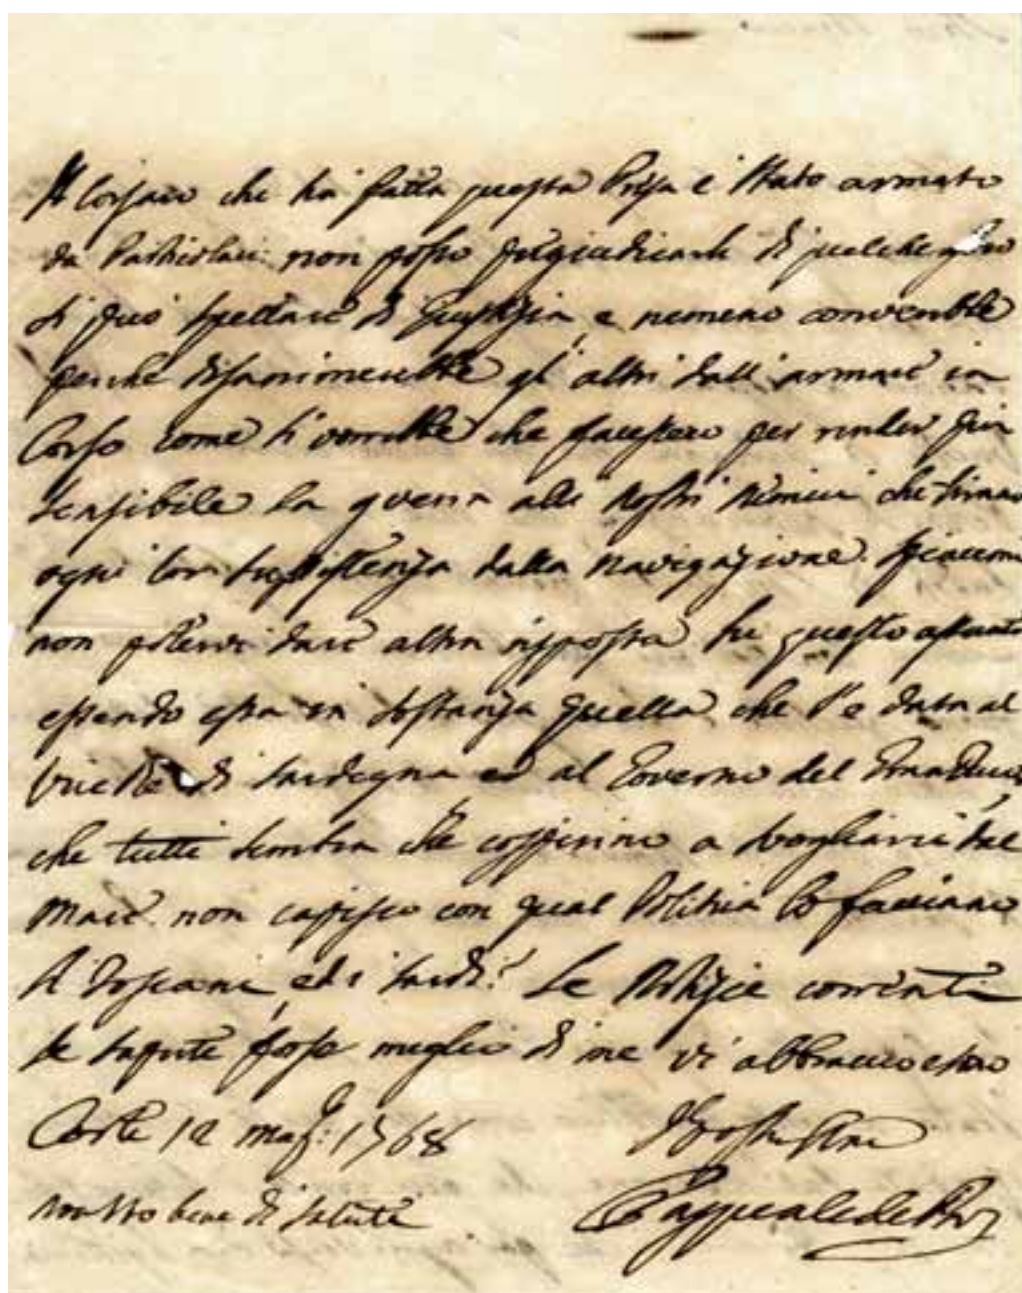 Il Corsaro che ha fatta questa Presa è stato armato
da Particolari: non posso pregiudicarli di quel che gli
si può spettare di Giustizia, e nemeno converrebbe
perché disanimerebbe gl'altri dall'armare in
Corso come si vorrebbe che facessero per render più
sensibile la guerra alli nostri Nemici che tirano
ogni lor sussistenza dalla navigazione. Spiacemi
non potervi dare altra risposta su questo assunto
essendo essa in sostanza quella che s'è data al
Vice Re di Sardegna ed al Governo del Gran Duca
che tutti sembra che cospirino a svogliarci dal
Mare. non capisco con qual Politica lo facciano
li Toscani, ed i Sardi? Le Notizie correnti
le sapete forse meglio di me vi abbraccio e sono
Corte 12 mag: 1768
Vostro
non sto bene di salute
Pasquale de Paoli